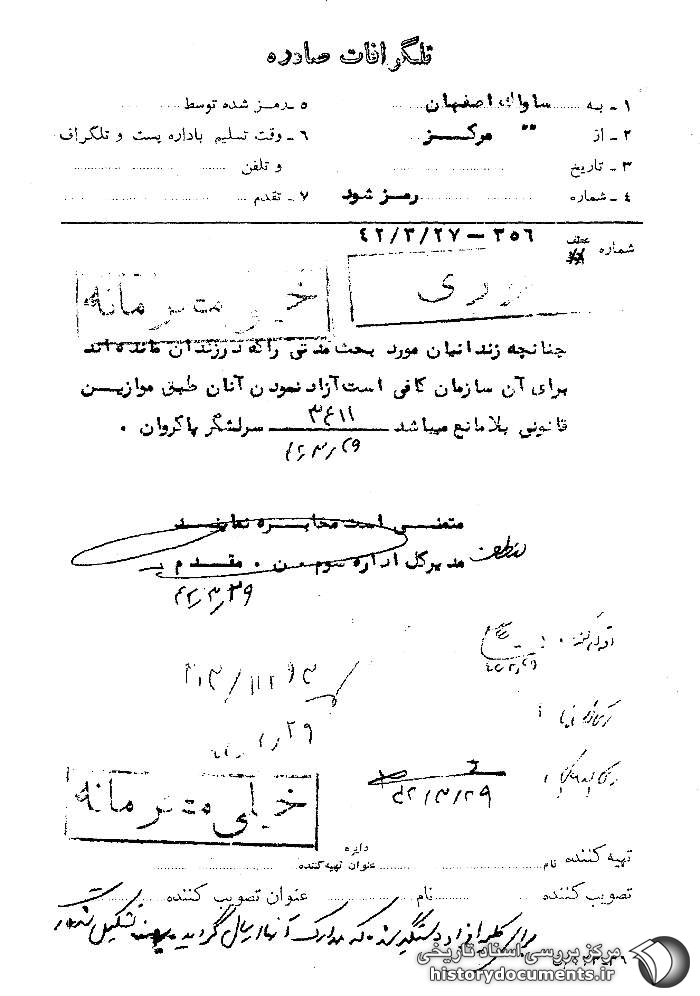 تلگرافات صادره
۱ - به ........ ساواك اصفهان
۵ - رمز شده توسط
۲ - از " " مركز
۶ - وقت تسلیم باداره پست و تلگراف
و تلفن
۳ - تاریخ
۴ - شماره رمز شود
۷ - تقدم
شماره عطف ۳۵۶ - ۴۲/۳/۲۷
خیلی محرمانه
چنانچه زندانیان مورد بحث مدتی را که در زندان مانده اند
برای آن سازمان کافی است آزاد نمودن آنان طبق موازین
قانونی بلامانع میباشد ۳۶۱۱ سرلشگر پاکروان .
متمنی است مخابره نمایند
مدیرکل اداره سوم . مقدم
۴۲/۳/۲۹
خیلی محرمانه
۴۲/۳/۲۹
تهیه کننده نام
دایره
عنوان تهیه کننده
تصویب کننده نام عنوان تصویب کننده
برای کلیه افراد دستگیر شده که مدارک آنها ارسال گردید تشکیل
مرکز بررسی اسناد تاریخی
historydocuments.ir